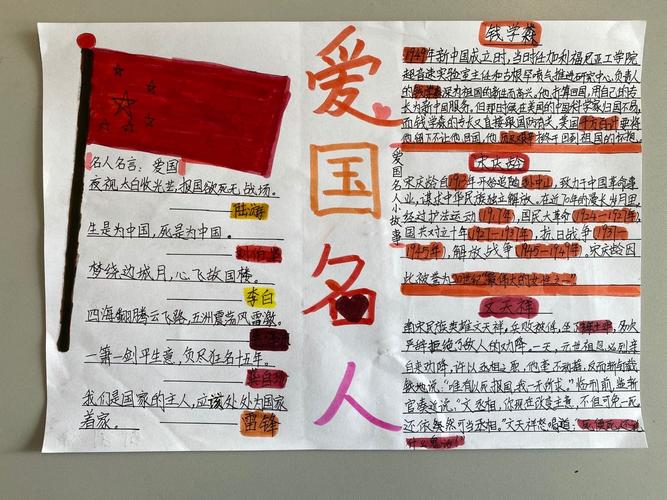 名人名言：爱国
夜视太白收光芒，报国欲死无战场。
陆游
生是为中国，死是为中国。
梦绕边城月，心飞故国楼。
李白
四海翻腾云飞路，五洲震荡风雷激。
一箫一剑平生意，负尽狂名十五年。
龚自珍
我们是国家的主人，应该处处为国家
着家。
雷锋
爱国名人
爱国名人小故事
钱学森
1949年新中国成立时，当时任加利福尼亚工学院
超音速实验室主任和古根罕喷气推进研究中心负责人
的钱学森深为祖国的新生而高兴。他打算回国，用自己的专
长为新中国服务。但那时候在美国的中国科学家归国不易，
而钱学森的专长又直接跟国防有关，美国千方百计要将
他留下不让他回国，他
终于回到祖国的怀抱。
宋庆龄
宋庆龄自1913年开始追随孙中山，致力于中国革命事
业，谋求中华民族独立解放。在近70年的漫长岁月里，
经过护法运动（1917年），国民大革命（1924—1927年），
国共对立十年（1927—1937年），抗日战争（1931—
1945年），解放战争（1945—1949年。宋庆龄因
此被誉为20世纪“最伟大的女性之一”
文天祥
南宋民族英雄文天祥，兵败被俘，坐了
多次
严辞拒绝了敌人的劝降。一天，元世祖忽必烈亲
自来劝降，许以丞相之职，他毫不动摇，反而斩钉截
铁地说：“唯有以死报国，我一无所求。”临刑前，监斩
官凑近说：“文丞相，你现在改变主意，不但可免一死，
还依然可当丞相。”文天祥怒喝道：